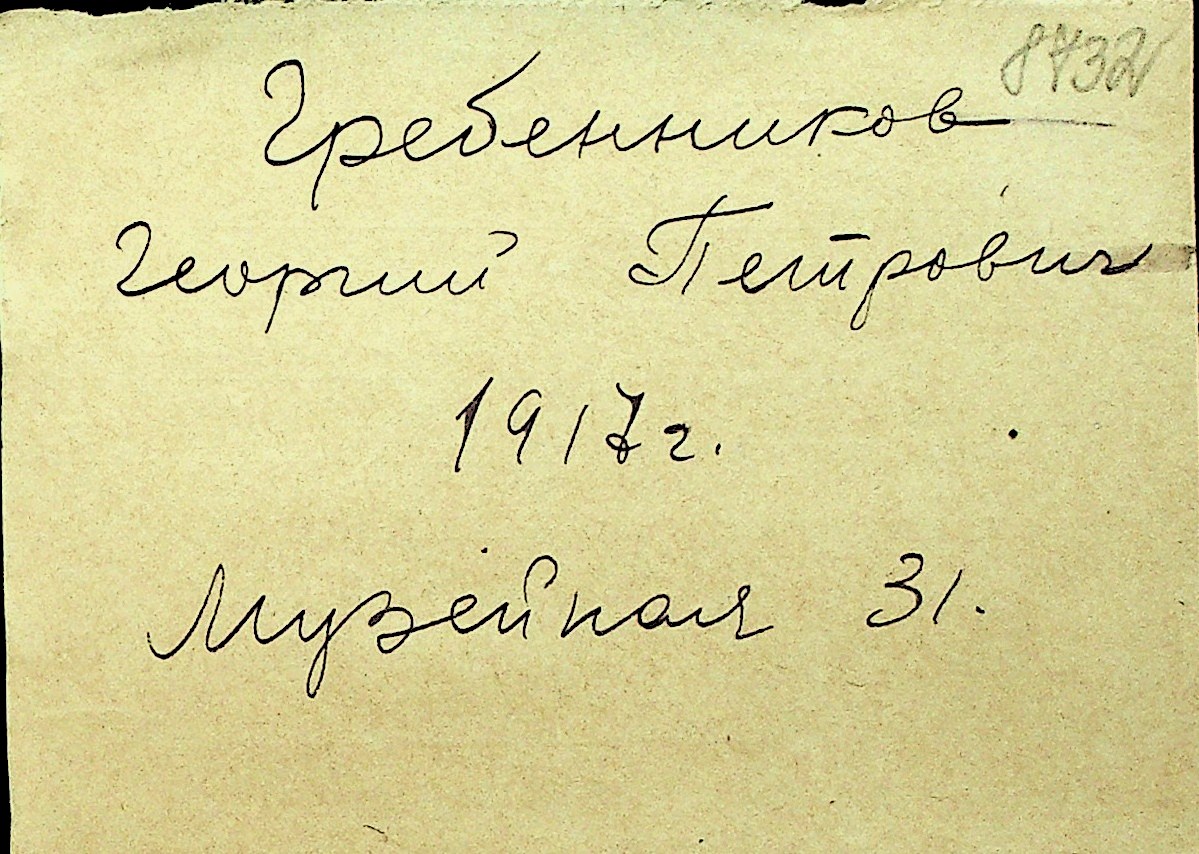 8732
Гребенников
Георгий Петрович
1917г.
Музейная 31.